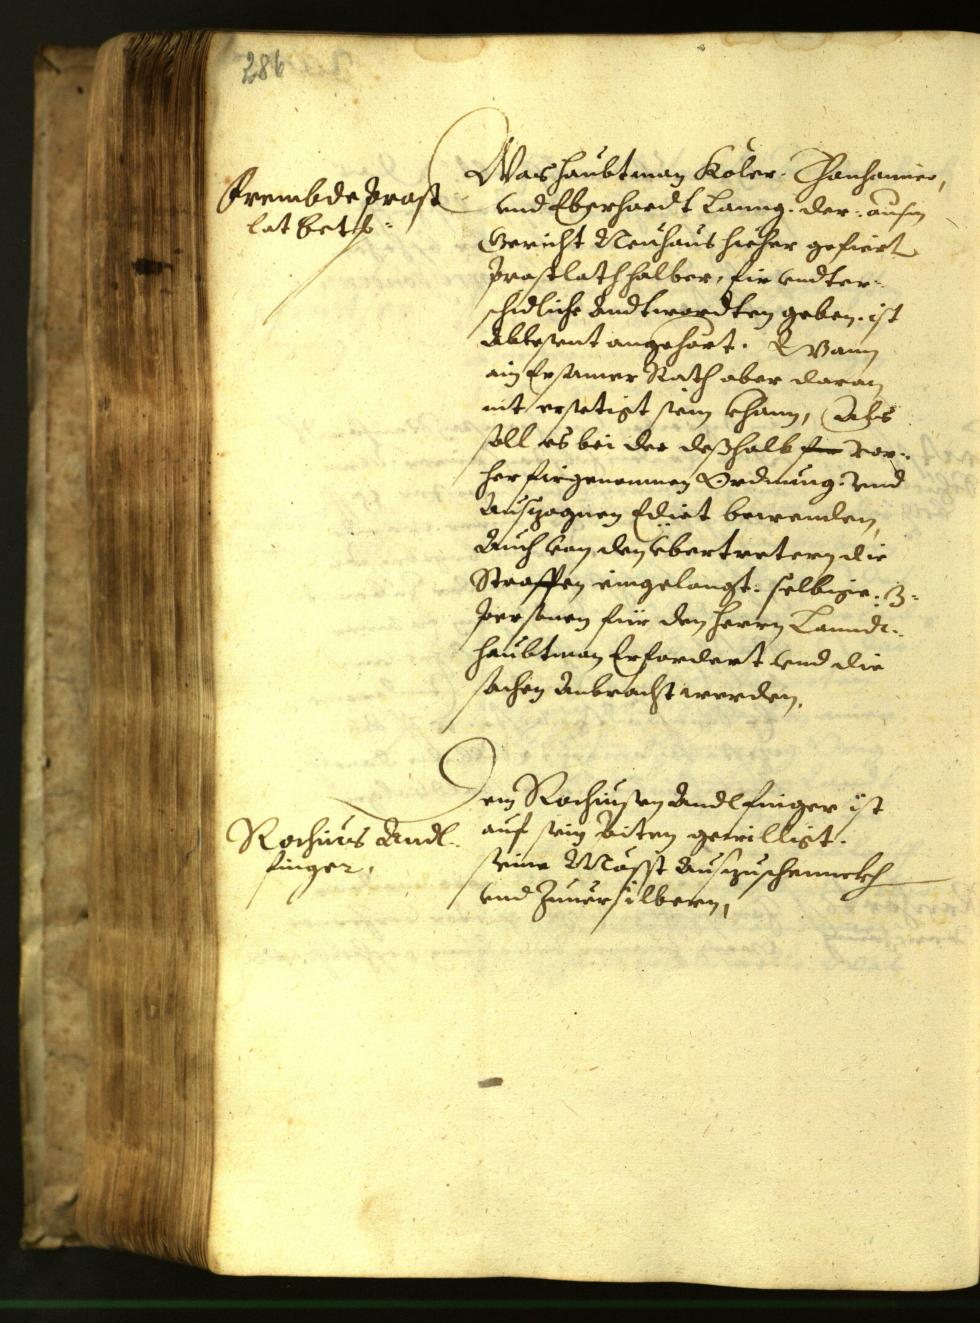 286
Frembde Prast
lat betr:
Was haubtman Köler. Thanhamer,
vnd Eberhardt Lanng. der: ausm
Gericht Neuhaus hieher gefiert
Prastlath halber, fir vndter-
schidliche Andtwordten geben. ist
ablesent angehört. Wann
ain Ersamer Rath aber daran
nit ersetigt sein khann, Als
soll es bei der deßhalb vor-
her firgenomnen Ordnung: vnd
Auszognen Edict bewenden,
Auch von den vbertretern die
Straffen eingelangt: selbige: 3:
Personen für den herrn Lanndts-
haubtman Erfordert vnd die
sachen Anbracht werden,
Rochius Andl-
finger,
Dem Rochiusen Andlfinger ist
auf sein biten gewilligt.
seine Mösst auszuschennckh
vnd zuuersilbern,